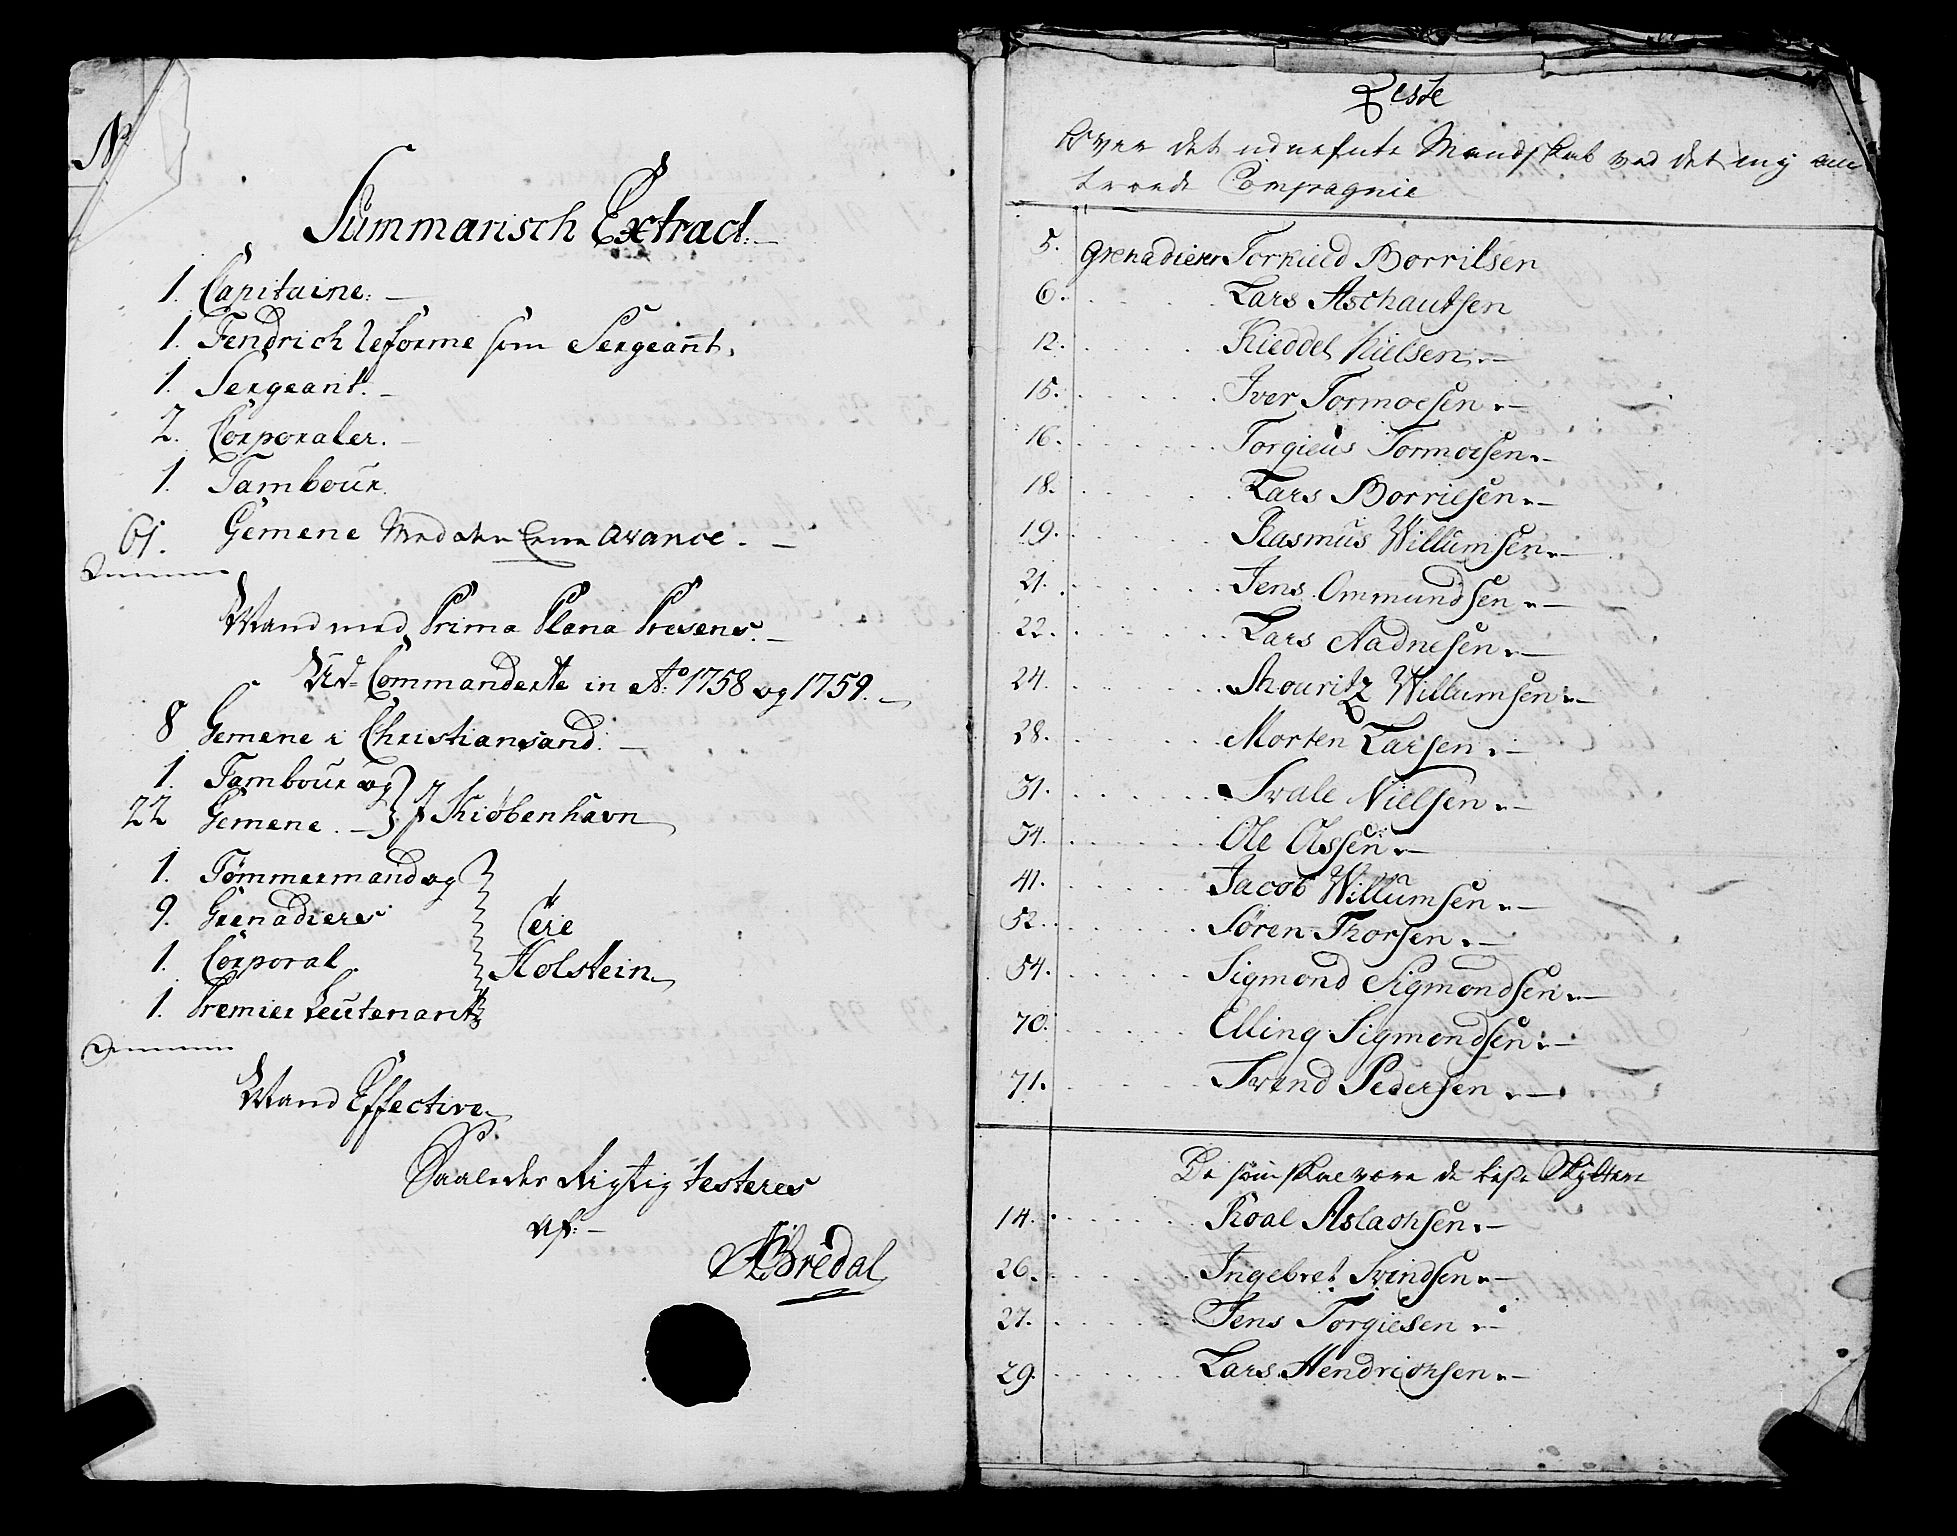 No
Summarisch Extract:
1. Capitaine:
1. Fendrich Reforme som Sergeant,
1. Sergeant.
2. Corporaler.
1. Tambour.
61. Gemene Med den Ene Avance.
Summa
Mand med Prima Plana Presens.
Ud-Commanderte in Ao: 1758 og 1759.
8 Gemene i Christiansand.
1. Tambour og
22 Gemene. J Kiøbenhavn
1. Tømmermand og
9. Grenadierer
1. Corporal. Ere
1. Premier Leutenant Holstein
Summa
Mand Effective
Saaledes Rigtig Testeres
af:
Bredal
Liste
Over det udnefnte Mandskab ved det mig
troede Compagnie
5. Grenadierer Torkield Borrilsen
6. Lars Aschautsen
12. Kieddel Kielsen
15. Iver Tormoesen
16. Torgieus Tormoesen
18. Lars Borrielsen
19. Rasmus Willumsen
21. Jens Ommundsen
22. Lars Aadnesen
24. Mouritz Willumsen
28. Morten Larsen
31. Svale Nielsen
34. Ole Olssen
41. Jacob Willumsen
52. Søren Thorsen
54. Sigmond Sigmondsen
70. Elling Sigmondsen
71. Svend Pedersen
De som skal være de beste Skyttere
14. Roal Aslachsen
26. Ingebret Svendsen
27. Jens Torgiesen
29. Lars Hendrichsen